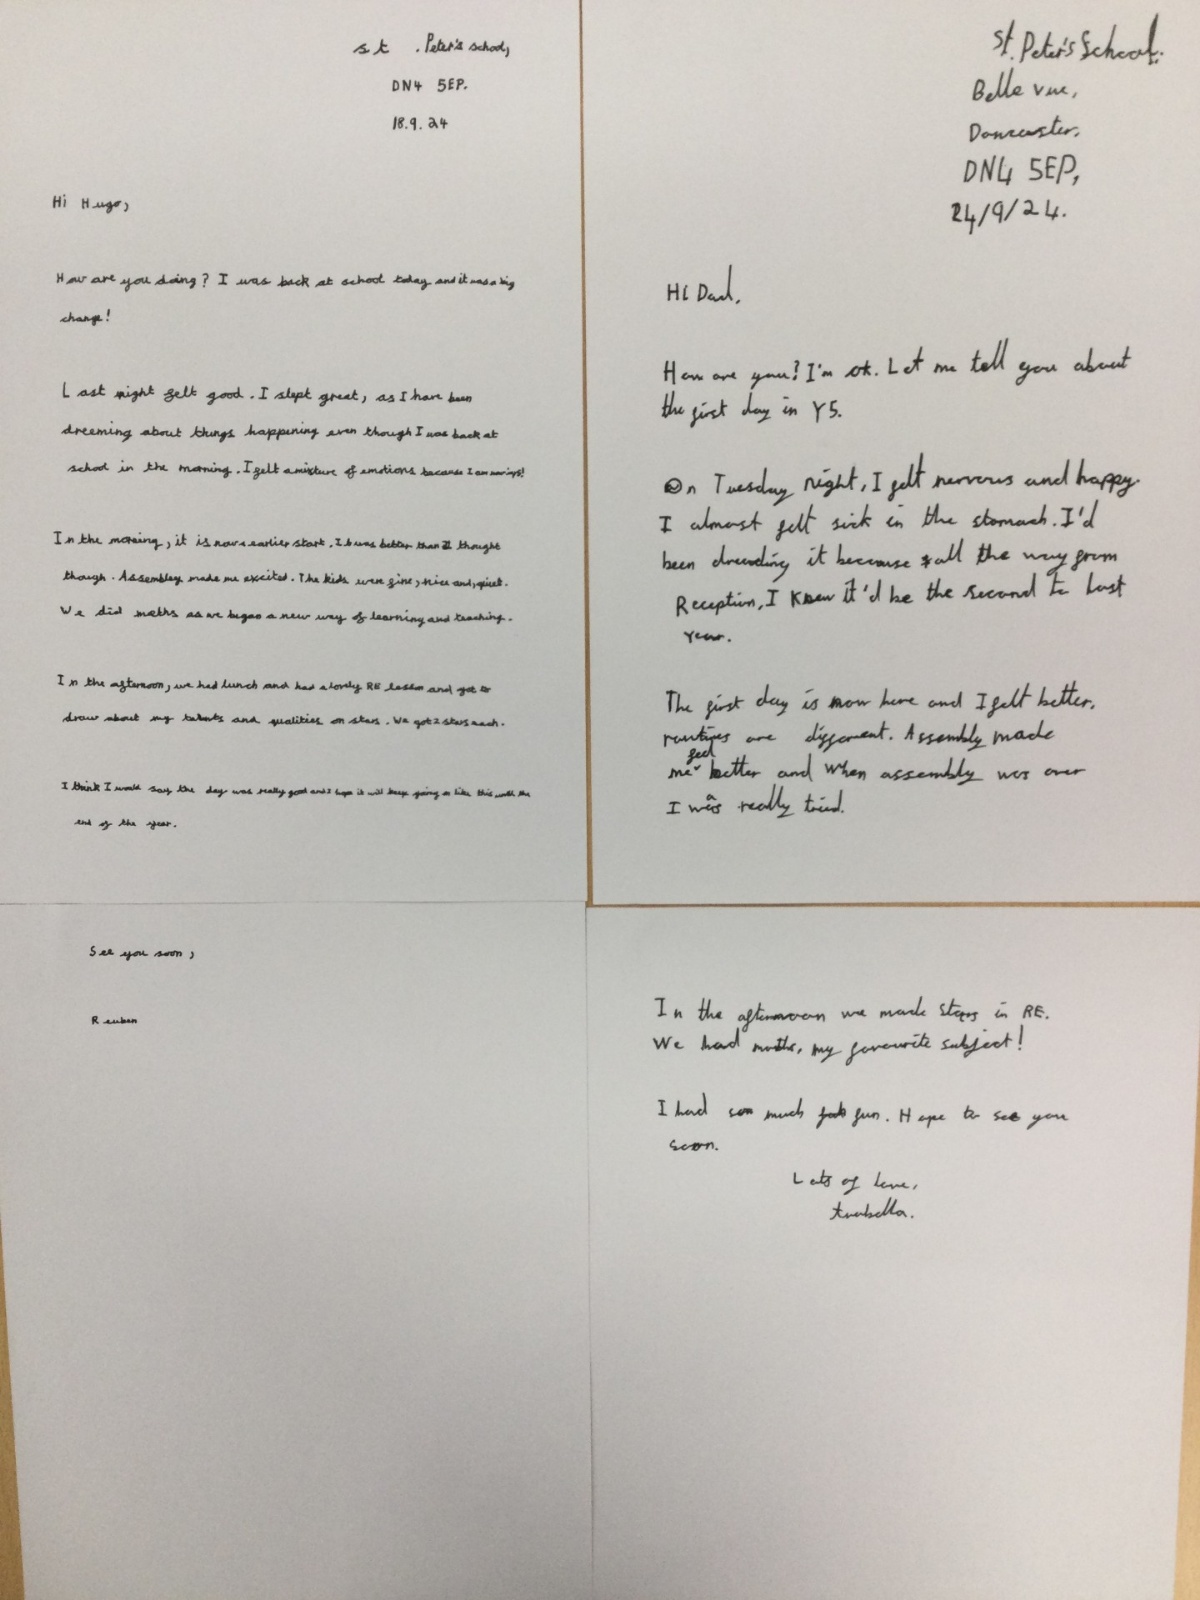 st. Peter's school,
DN4 5EP.
18.9.24
Hi Hugo,
How are you doing? I was back at school today and it was a big
change!
Last night felt good. I slept great, as I have been
dreeming about things happening even though I was back at
school in the morning. I felt a mixture of emotions because I am
In the morning, it is now a earlier start. It was better than I thought
though. Assembley made me excited. The kids were fine, nice and, quiet.
We did maths as we began a new way of learning and teaching.
In the afternoon, we had lunch and had a lovely RE lesson and got to
draw about my talents and qualities on stars. We got 2 stars each.
I think I would say the day was really good and I hope it will keep going on like this until the
end of the year.
See you soon,
Reuben
St. Peter's School.
Belle vue,
Doncaster,
DN4 5EP,
24/9/24.
Hi Dad,
How are you? I'm ok. Let me tell you about
the first day in Y5.
On Tuesday night, I felt nervous and happy.
I almost felt sick in the stomach. I'd
been dreading it because all the way from
Reception, I knew it'd be the second to last
year.
The first day is now here and I felt better,
routines are different. Assembly made
me feel better and when assembly was over
I was really tried.
In the afternoon we made stars in RE.
We had maths, my favourite subject!
I had soo much fun. Hope to see you
soon.
Lots of love,
Anabella.